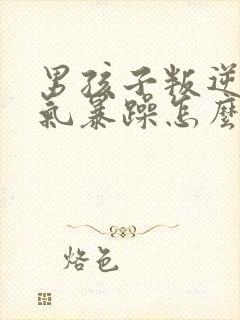 男孩子叛逆
氣暴躁怎麼
烙色